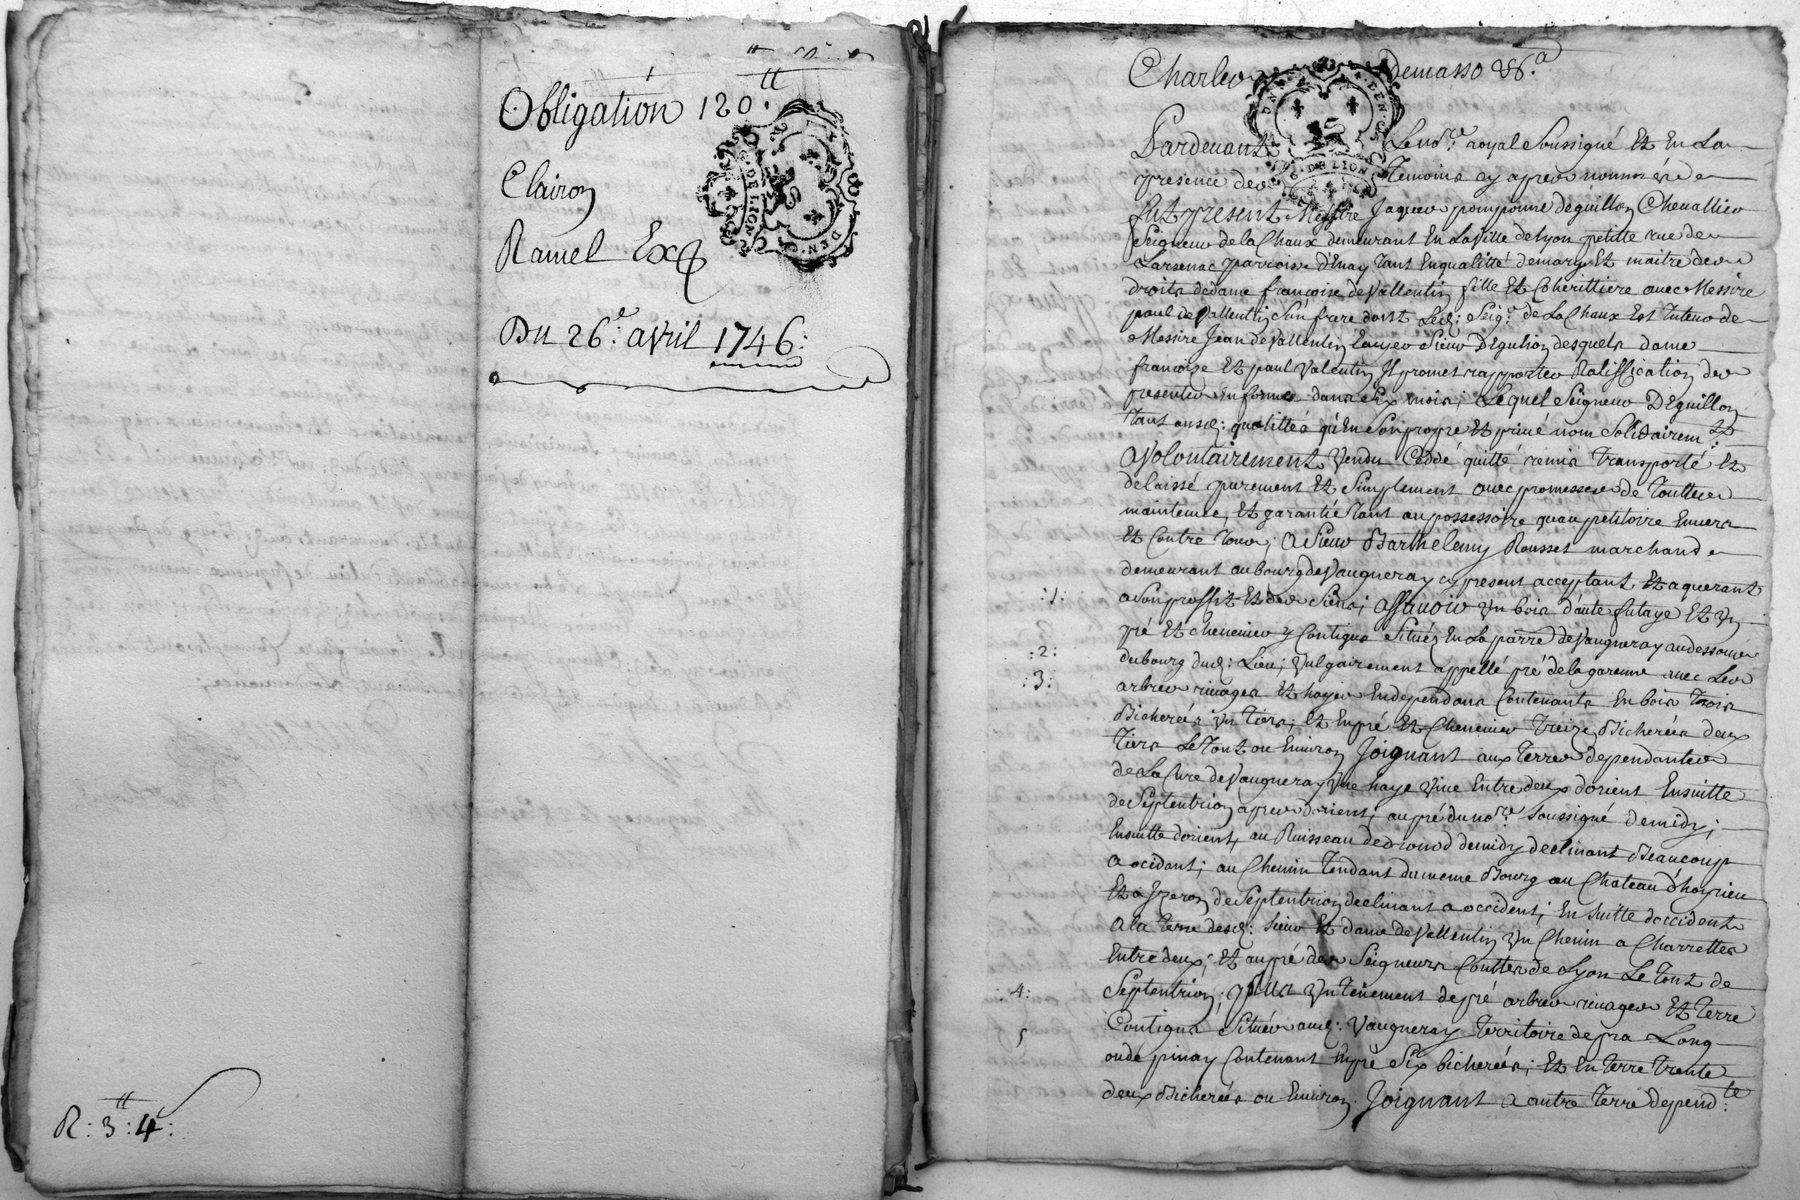 Obligation 120.ᵗᵗ
Clairon
Ramel Exp
Du 26.ᵉ avril 1746:
R: 3ᵗᵗ: 4:
Charles demasso
Pardevant Le no.ʳᵉ royal soussigné Et En La
presence des Temoins cy apres nommés
fut present Messire Jaques pomponne deguillon Chevallier
Seigneur de la Chaux demeurant En La Ville de Lyon petitte rue de
Larsenac parroisse d'Enay Tant En qualitté de mary Et maitre des
droits de dame francoise de Vallentin fille Et Coherittiere avec Messire
paul de Vallentin son frere dont Led: Seig.ʳ de La Chaux Est Tuteur de
Messire Jean de Vallentin Ecuyer Sieur Deguilion desquels dame
francoise Et paul Valentin Il promet rapporter Ratiffication des
presentes En forme dans Six mois; Lequel Seigneur Deguillon
Tant ausd: qualittés qu'En Son propre Et privé nom Solidairem.ᵗ
a Volontairement Vendu Ceddé quitté remis transporté Et
delaissé purement Et Simplement avec promesses de Toutte
maintenue, Et garantie Tant au possessoire quau petitoire Envers
Et Contre Tous; a Sieur Barthelemy Rousset marchand
demeurant au bourg de Vaugneray cy present acceptant, Et aquerant
:1: a Son proffit Et des Siens; assavoir Un bois d'aute futaye Et Un
pré Et chenevier y Contigus Situés En La parr.ᵉ de Vaugneray au dessous
:2: du bourg dud: Lieu; Vulgairement appellé pré de la garenne avec Les
:3: arbres rivages Et hayes En dependans Contenants En bois Trois
Bicherées Un Tiers, Et En pré Et Chenevier Treize Bicherées deux
Tiers Le Tout ou Environ Joignant aux Terres dependantes
de La Cure de Vaugneray Une haye Vive Entre deux dorient Ensuitte
de Septentrion apres dorient; au pré du no.ʳᵉ Soussigné de midy;
Ensuitte dorient, au Ruisseau de de midy declinant Beaucoup
a occidant; au Chemin Tendant du meme Bourg au Chateau
Et a Yzeron de Septentrion declinant a occident; En Suitte doccident
a la Terre desd: Sieur Et dame de Vallentin Un Chemin a Charrettes
Entre deux; Et au pré des Seigneurs Comtes de Lyon Le Tout de
:4: Septentrion; plus Un Tenement de pré arbres rivages Et Terre
5 Contigus Situés aud: Vaugneray Territoire de pra Long
ou de pinay Contenant En pré Six bicherées; Et En Terre Trente
deux Bicherées ou Environ. Joignant a autre Terre depend:ᵗᵉ